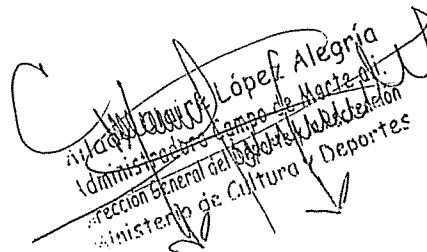 López Alegría
Administradora Campo de Marte a.i.
Dirección General del Deporte y la Recreación
Ministerio de Cultura y Deportes